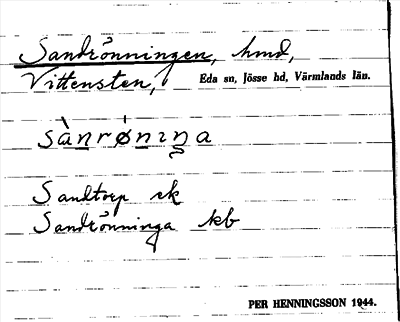 Sandrönningen, hmd,
Vittensten, Eda sn, Jösse hd, Värmlands län.
sà̱nrǿ̱nıŋa
Sandtorp ek
Sandrönninga kb
PER HENNINGSSON 1944.